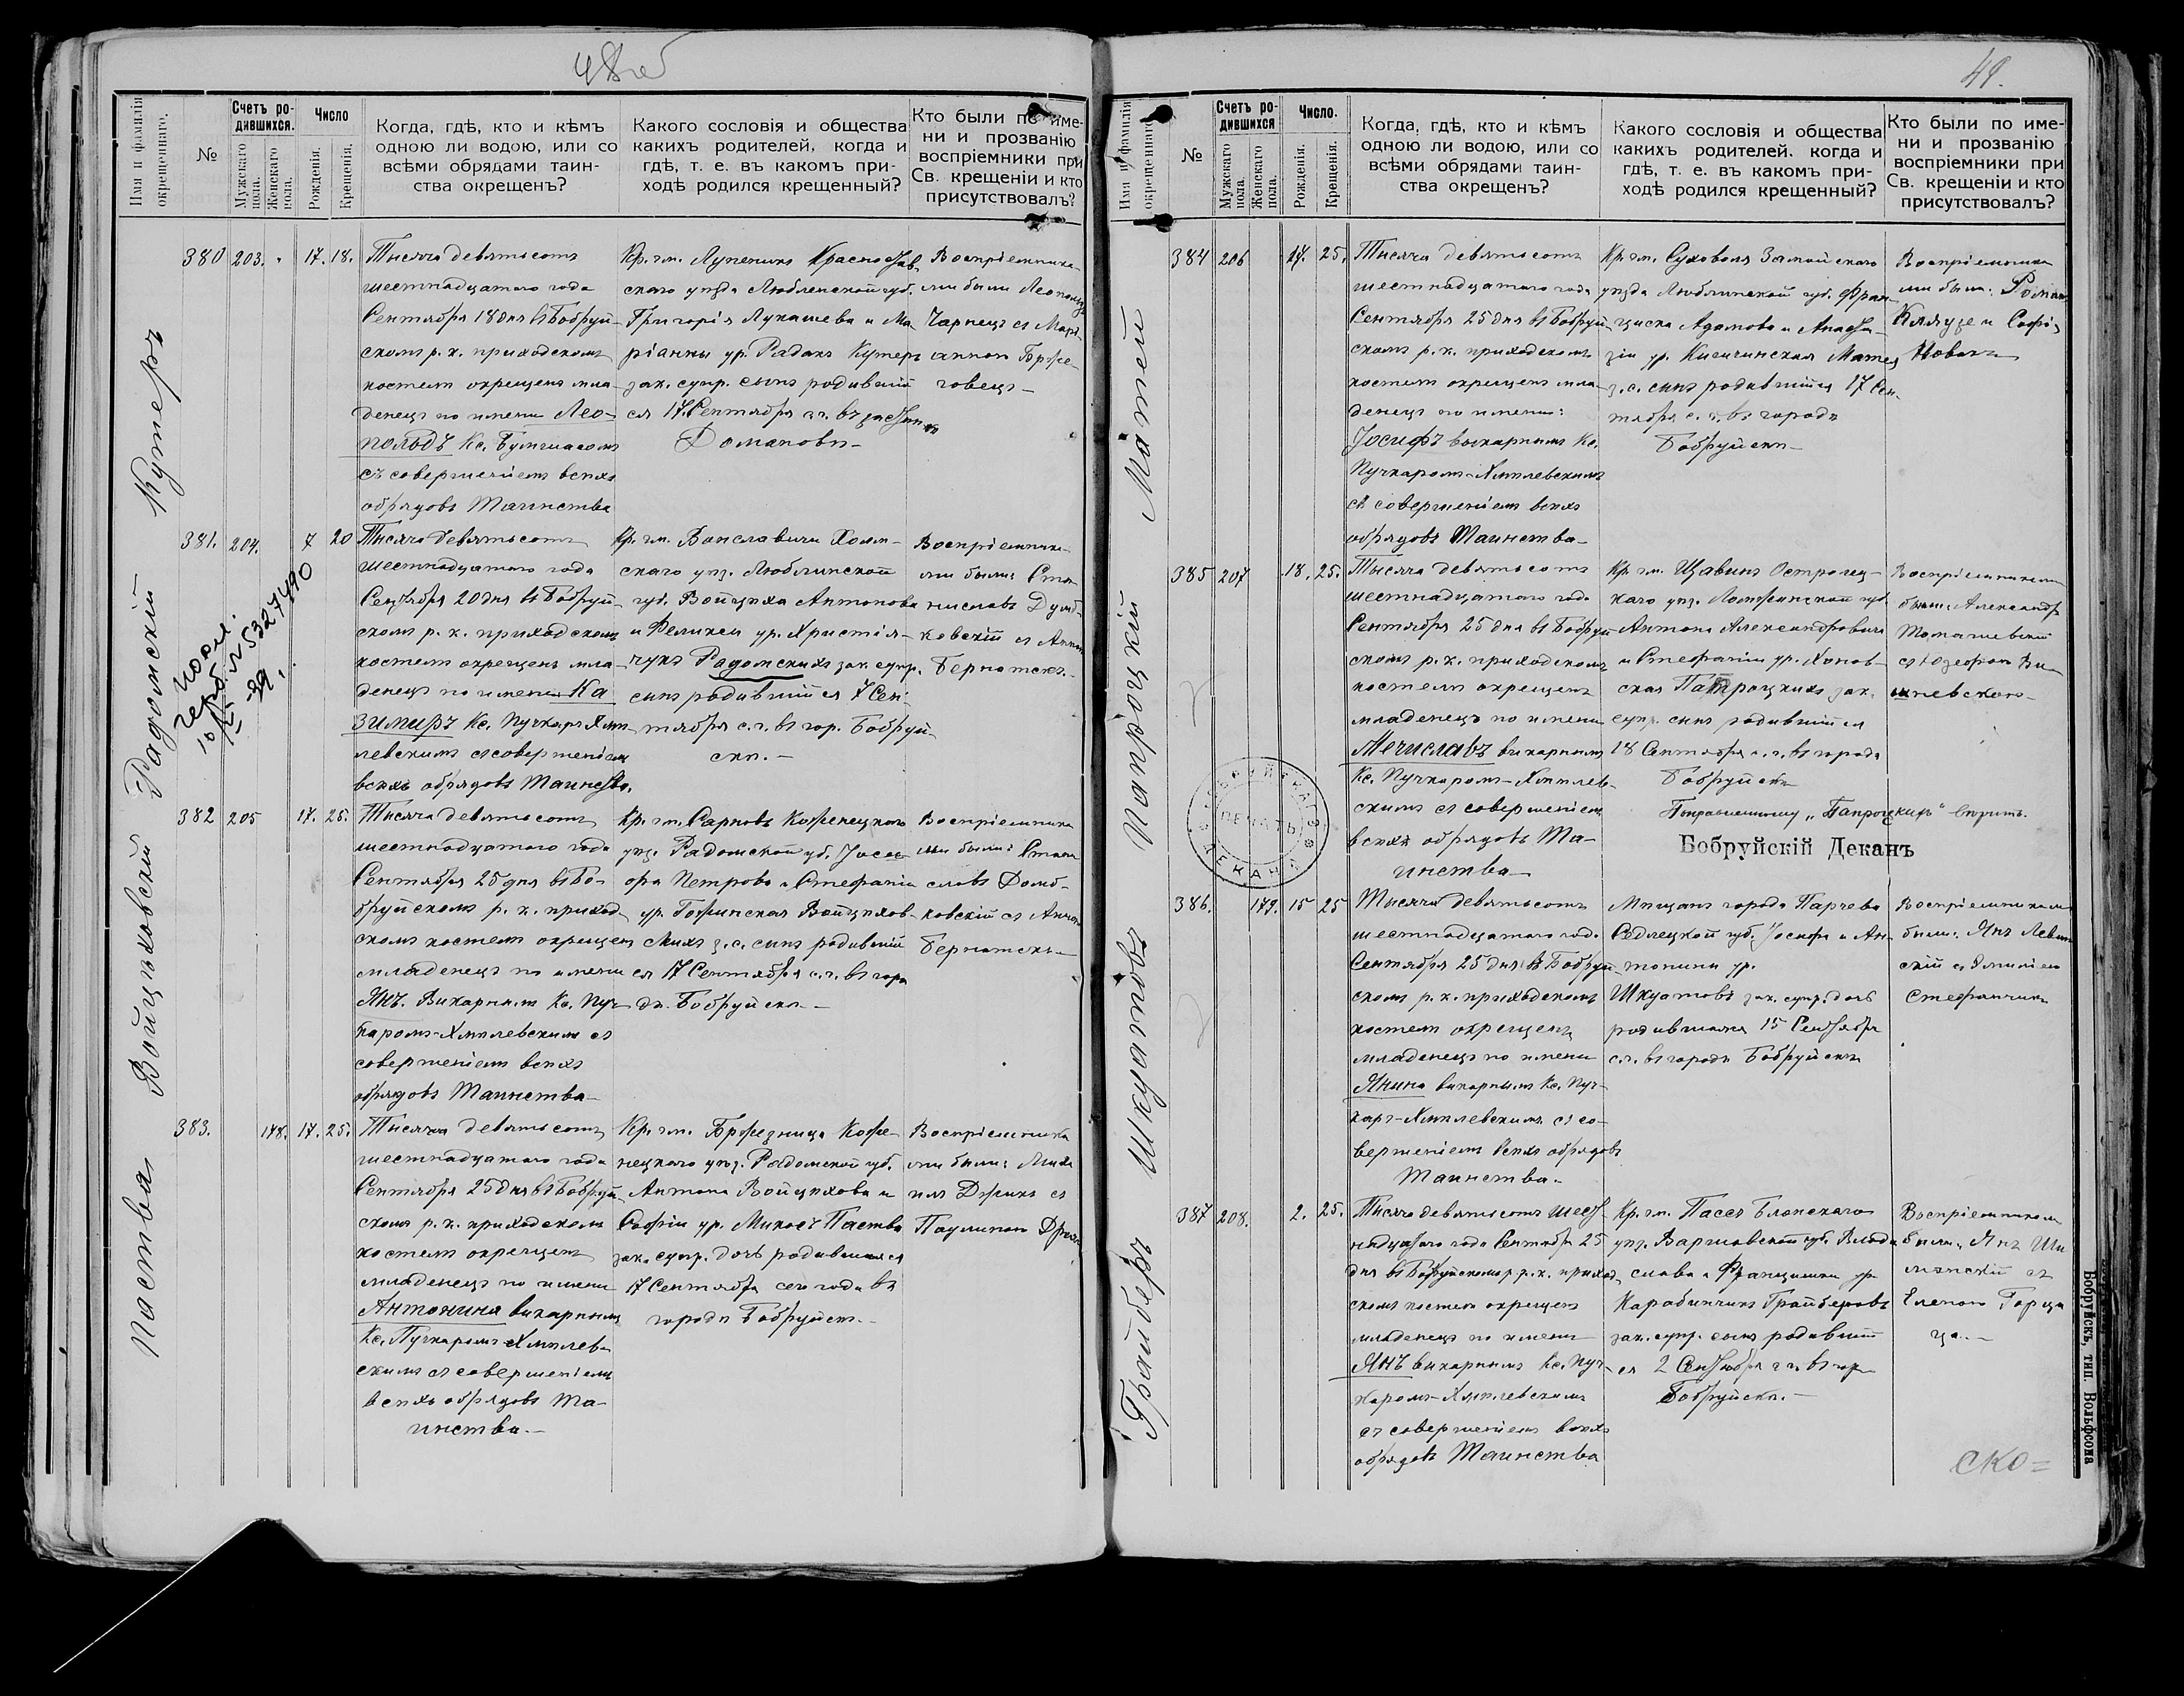 48 об
Имя и фамилія окрещеннаго.
№
Счетъ ро-
дившихся.
Мужскаго пола.
Женскаго пола.
Число
Рожденія.
Крещенія.
Когда, гдѣ, кто и кѣмъ
одною ли водою, или со
всѣми обрядами таин-
ства окрещенъ?
Какого сословія и общества
какихъ родителей, когда и
гдѣ, т. е. въ какомъ при-
ходѣ родился крещенный?
Кто были по име-
ни и прозванію
воспріемники при
Св. крещеніи и кто
присутствовалъ?
Кутеръ
380 203. " 17. 18.
Тысяча девятьсотъ
шестнадцатаго года
Сентября 18 дня въ Бобруй-
скомъ р. к. приходскомъ
костелѣ окрещенъ мла-
денецъ по имени Лео-
польдъ Кс.
съ совершеніемъ всѣхъ
обрядовъ Таинства
Кр. гм. Красностав-
скаго уѣзда Люблинской губ.
Григорія Лукашева и Ма-
ріанны ур. Кутеръ
зак. супр. сынъ родившій
ся 17 Сентября с.г. въ
Домановѣ
Воспріемника-
ми были Леопольдъ
Чарнецъ съ Марі-
анною
Радомскій
381. 204. 7 20
Тысяча девятьсотъ
шестнадцатаго года
Сентября 20 дня въ Бобруй-
скомъ р. к. приходскомъ
костелѣ окрещенъ мла-
денецъ по имени Ка
зимиръ Кс. Пучкаръ Хмѣ-
левскимъ съ совершеніемъ
всѣхъ обрядовъ Таинства.
Кр. гм. Холм-
скаго уѣз. Люблинской
губ. Войцѣха Антонова
и Феликсы ур. Христіа-
чукъ Радомскихъ зак. супр.
сынъ родившій ся 7 Сен-
тября с.г. въ гор. Бобруй-
скѣ.
Воспріемника-
ми были: Ста-
ниславъ Домб-
ковскій съ Анною
Войцѣховскій
382 205 17. 25.
Тысяча девятьсотъ
шестнадцатаго года
Сентября 25 дня въ Бо-
бруйскомъ р. к. приход-
скомъ костелѣ окрещенъ
младенецъ по имени
Янъ. Викарнымъ Кс. Пуч-
каромъ-Хмѣлевскимъ съ
совершеніемъ всѣхъ
обрядовъ Таинства
Кр. гм. Сарновъ Коженецкаго
уѣз. Радомской губ.
Петрова и Стефаніи
ур. Войцѣхов-
скихъ з. с. сынъ родившій
ся 17 Сентября с.г. въ горо
дѣ Бобруйскѣ.
Воспріемника
ми были: Стани
славъ Домб-
ковскій съ Анною
Паства
383. 178. 17. 25.
Тысяча девятьсотъ
шестнадцатаго года
Сентября 25 дня въ Бобруй-
скомъ р. к. приходскомъ
костелѣ окрещенъ
младенецъ по имени
Антонина викарнымъ
Кс. Пучкаромъ-Хмѣлев-
скимъ съ совершеніемъ
всѣхъ обрядовъ Та-
инства.
Кр. гм. Бржезница Коже-
нецкаго уѣз. Радомской губ.
Антона Войцѣхова и
Софіи ур. Микосъ Паства
зак. супр. дочь родившаяся
17 Сентября сего года въ
городѣ Бобруйскѣ.
Воспріемника
ми были: Миха
илъ съ
Паулиною
49.
Имя и фамилія окрещеннаго
№
Счетъ ро-
дившихся
Мужскаго пола.
Женскаго пола.
Число.
Рожденія.
Крещенія.
Когда, гдѣ, кто и кѣмъ
одною ли водою, или со
всѣми обрядами таин-
ства окрещенъ?
Какого сословія и общества
какихъ родителей. когда и
гдѣ, т. е. въ какомъ при-
ходѣ родился крещенный?
Кто были по име-
ни и прозванію
воспріемники при
Св. крещеніи и кто
присутствовалъ?
Матей
384 206 17. 25.
Тысяча девятьсотъ
шестнадцатаго года
Сентября 25 дня въ Бобруй-
скомъ р. к. приходскомъ
костелѣ окрещенъ мла-
денецъ по имени:
Іосифъ викарнымъ Кс.
Пучкаромъ-Хмѣлевскимъ
съ совершеніемъ всѣхъ
обрядовъ Таинства
Кр. гм. Суховоля Замойскаго
уѣзда Люблинской губ. Фран-
циска Адамова и Анаста-
зіи ур. Матей
з. с. сынъ родившійся 17 Сен-
тября с. г. въ городѣ
Бобруйскѣ
Воспріемника
ми были: Романъ
и Софія
Новакъ
Папроцкій
385 207 18. 25.
Тысяча девятьсотъ
шестнадцатаго года
Сентября 25 дня въ Бобруй-
скомъ р. к. приходскомъ
костелѣ окрещенъ
младенецъ по имени
Мечиславъ викарнымъ
Кс. Пучкаромъ-Хмѣлев-
скимъ съ совершеніемъ
всѣхъ обрядовъ Та-
инства
Кр. гм. Щавинъ Остролец-
каго уѣз. Ломжинской губ.
Антона Александровича
и Стефаніи ур.
Папроцкихъ зак.
супр. сынъ родившійся
18 Сентября с.г. въ городѣ
Бобруйскѣ
Поправленному „Папроцкихъ" вѣрить.
Бобруйскій Деканъ
Воспріемниками
были: Александръ
Томашевскій
съ Юзефою Ви
шневскою
ПЕЧАТЬ
БОБРУЙСКАГО ДЕКАНА
Шкуатовъ
386. 179. 15 25
Тысяча девятьсотъ
шестнадцатаго года
Сентября 25 дня въ Бобруй-
скомъ р. к. приходскомъ
костелѣ окрещенъ
младенецъ по имени
Янина викарнымъ Кс. Пуч-
каръ-Хмѣлевскимъ съ со-
вершеніемъ всѣхъ обрядовъ
Таинства.
Мѣщанъ города Парчева
Сѣдлецкой губ. Іосифа и Ан-
тонины ур.
Шкуатовъ зак. супр. дочь
родившаяся 15 Сентября
с.г. въ городѣ Бобруйскѣ
Воспріемниками
были: Янъ Левин
скій съ Эмиліею
Стефанчикъ
Грайберъ
387 208. 2. 25.
Тысяча девятьсотъ шест-
надцатаго года Сентября 25
дня въ Бобруйскомъ р. к. приход-
скомъ костелѣ окрещенъ
младенецъ по имени
Янъ викарнымъ Кс. Пуч-
каромъ-Хмѣлевскимъ
съ совершеніемъ всѣхъ
обрядовъ Таинства
Кр. гм. Пассъ Блонскаго
уѣз. Варшавской губ. Влади
слава и Францишки ур.
Карабинчикъ Грайберовъ
зак. супр. сынъ родившій
ся 2 Сентября с.г. въ гор.
Бобруйскѣ.
Воспріемниками
были: Янъ Ши
манскій съ
Еленою
ско=
Бобруйскъ, тип. Вольфсона